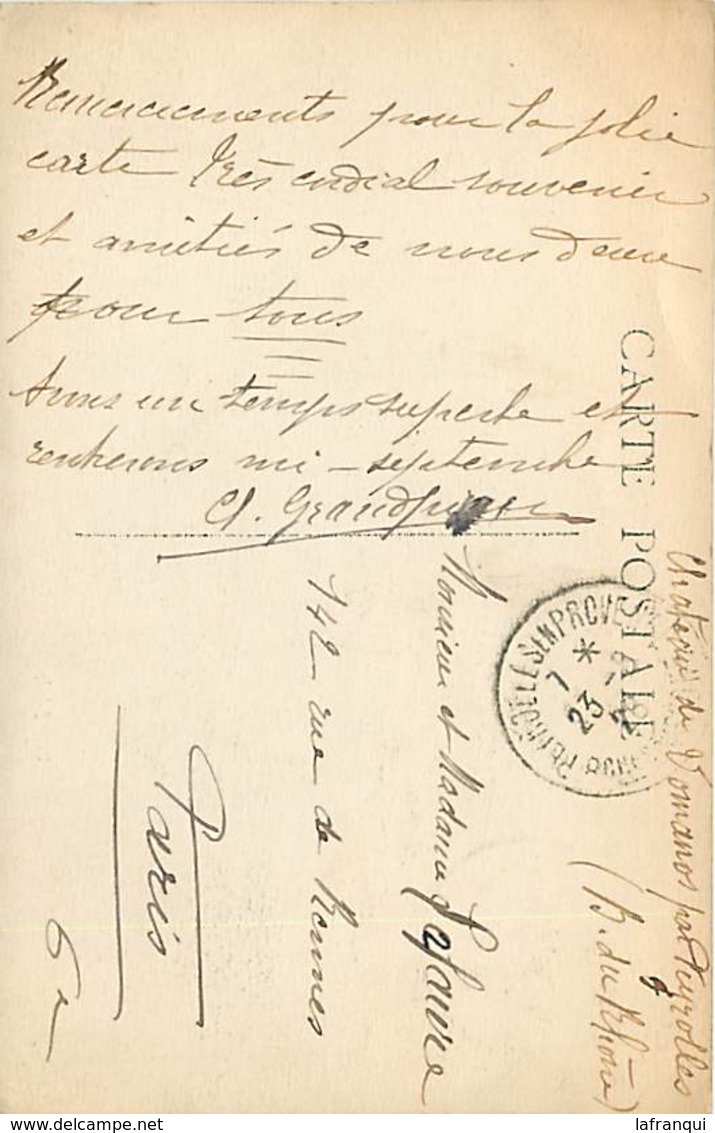 Remerciements pour la jolie
carte très cordial souvenir
et amitiés de nous deux
pour tous
Avons un temps superbe et
rentrerons mi-septembre
Cl.
CARTE POSTALE
Château de Vomanos par Peyrolles
(B. du Rhône)
PEYROLLES EN PROVENCE
7 *
23 - 8
Monsieur et Madame Lafavre
142 rue de Rennes
Paris
6e
lafranqui